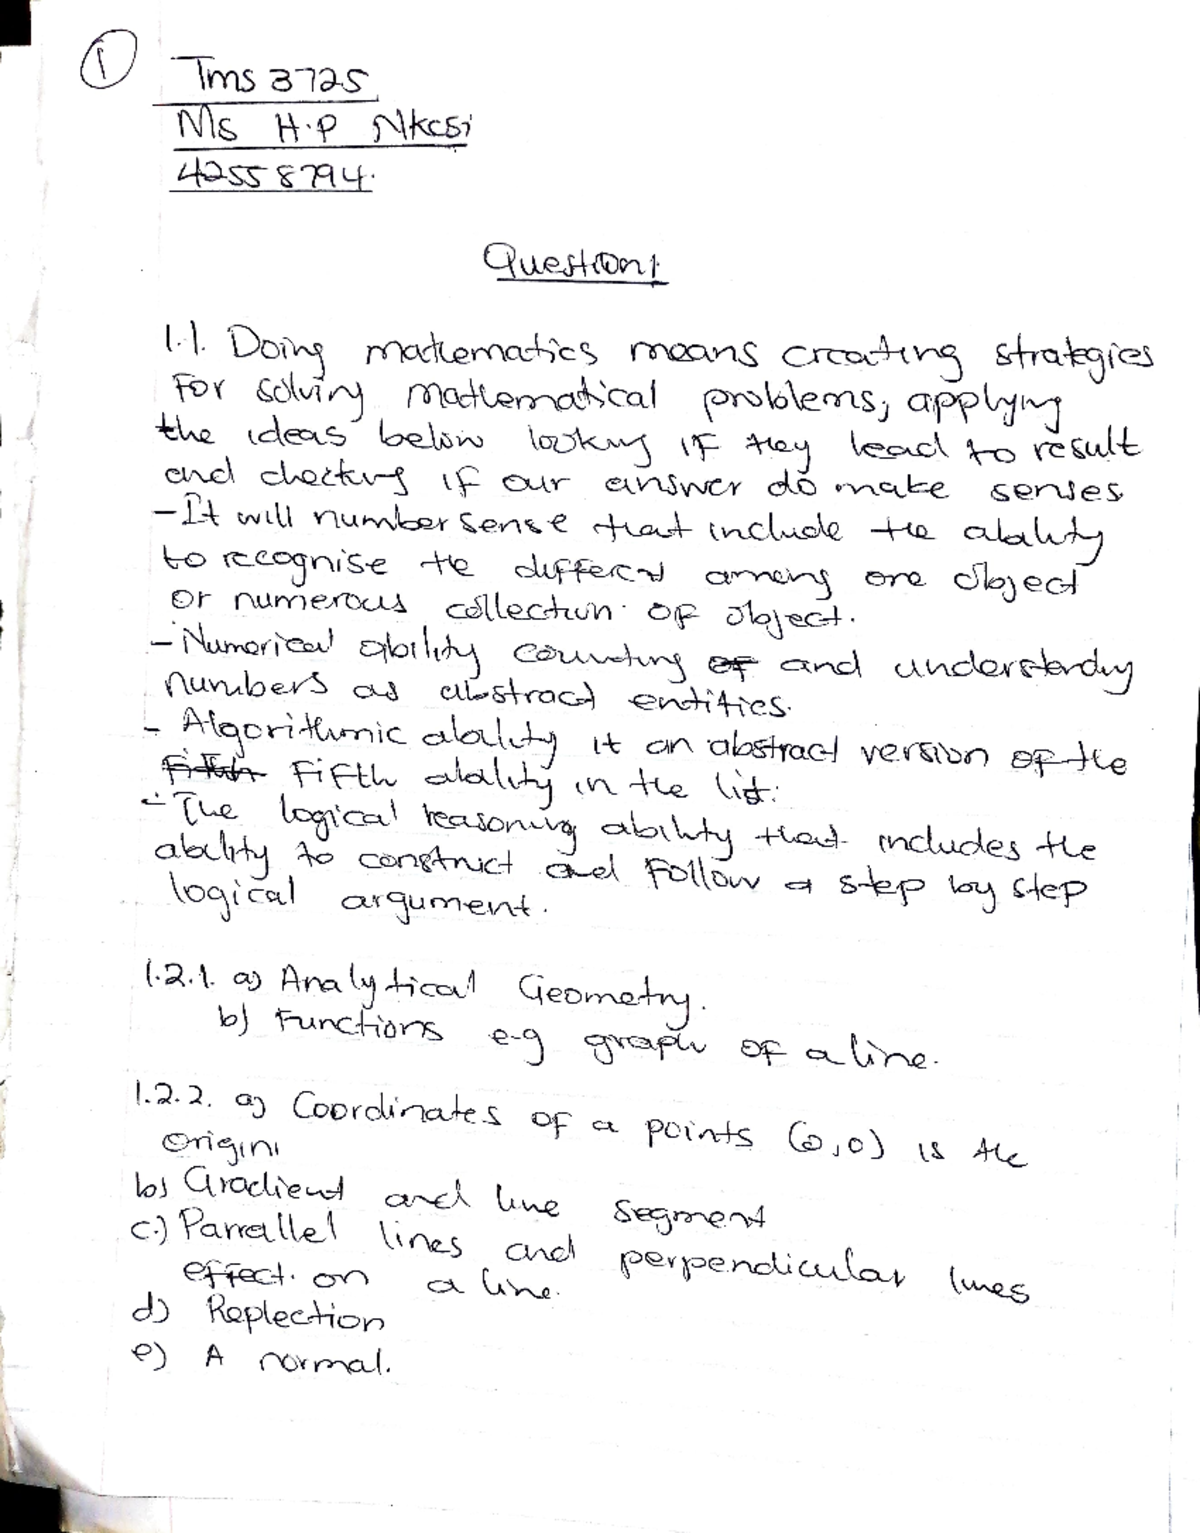 1
Tms 3725
Ms H.P Nkosi
42558794.
Question 1.
1.1. Doing mathematics means creating strategies
For solving mathematical problems, applying
the ideas below looking if they lead to result
and checking if our answer do make senses
- It will number sense that include the ability
to recognise the different among one object
or numerous collection of object.
- Numerical ability counting of and understanding
numbers as abstract entities.
- Algorithmic ability it an abstract version of the
Fifth Fifth ability in the list:
- The logical reasoning ability that includes the
ability to construct and Follow a step by step
logical argument.
1.2.1. a) Analytical Geometry.
b) Functions e-g graph of a line.
1.2.2. a) Coordinates of a points (0,0) is the
origin
b) Gradient and line segment
c.) Parrallel lines and perpendicular lines
effect. on a line.
d) Replection
e) A normal.